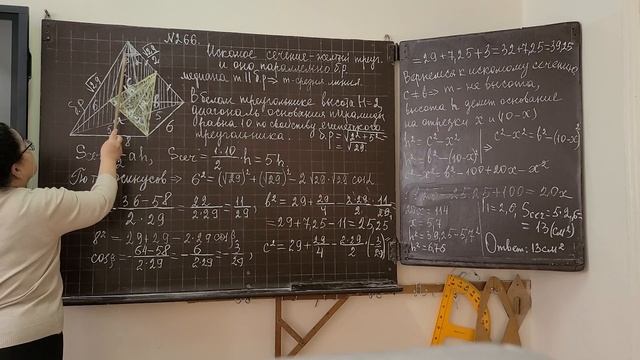 №266.
Искомое сечение-жёлтый треуг.
и оно параллельно б.р.
медиана m || б.р ⇒ m-средняя линия.
В белом треугольнике высота H=2,
диагональ основания пирамиды
равна 10 по свойству египетского
треугольника.
Sсеч = 1·10/2 · h = 5h
⇒ 6² = (√29)² + (√29)² - 2√29·√29 cosα
36-58
2·29
22
2·29
11
29
8² = 29+29 - 2·29 cosβ
cosβ = 64-58
2·29
6
2·29
3
29
b² = 29 + 29/4 - 2·29/2 · 11/29
= 29+7,25-11 = 25,25
c² = 29 + 29/4 - 2·29/2 · (-3/29)
= 29+7,25+3=32+7,25=39,25
Вернемся к искомому сечению
c ≠ b ⇒ m - не высота,
высота h делит основание
на отрезки x и (10-x)
h² = c² - x²
h² = b² - (10-x)²
⇒ c² - x² = b² - (10-x)²
c² - x² = b² - 100 + 20x - x²
+100 = 20x
20x = 114
x = 5,7
h² = 39,25 - 5,7²
h² = 6,76
h = 2,6;
Sсеч = 5·2,6=
= 13(см²)
Ответ: 13см²